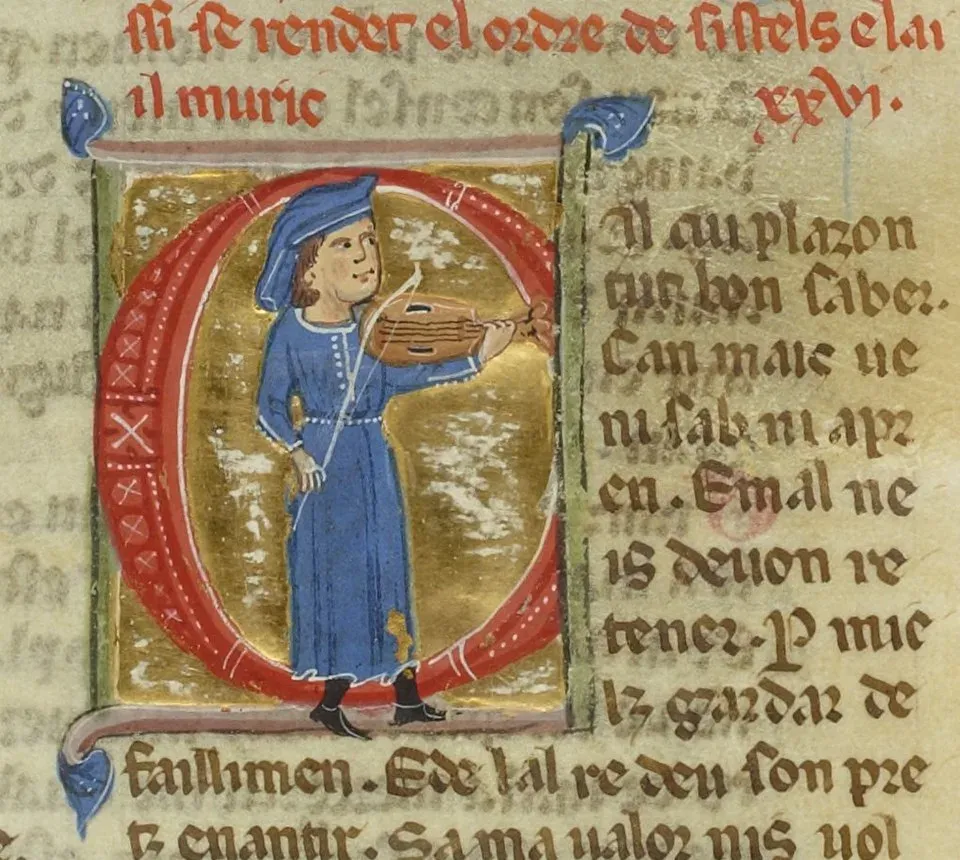 ssi se rendet el ordre de sistels e lai
il muric
xxvi.
Al cui plazon
tut bon saber.
Can mais ue
ni sab ni apr
en. E mal ne
is deuon re
tener. P mie
lz gardar de
faillimen. E de lal re deu son pre
tz enantir. Sa ma ualor nis uol